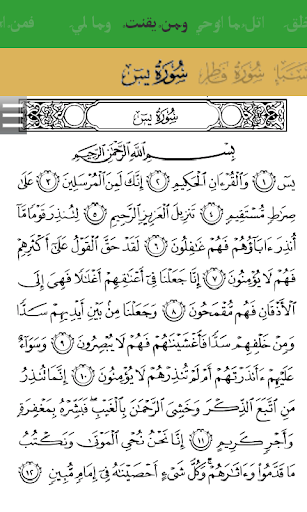 خلق. اتل ما اوحي ومن يقنت. وما لي.
سَبَإ سُورَةُ فَاطِر سُورَةُ يسٓ
سُورَةُ يسٓ
بِسۡمِ ٱللَّهِ ٱلرَّحۡمَٰنِ ٱلرَّحِيمِ
يسٓ ۝١ وَٱلۡقُرۡءَانِ ٱلۡحَكِيمِ ۝٢ إِنَّكَ لَمِنَ ٱلۡمُرۡسَلِينَ ۝٣ عَلَىٰ
صِرَٰطٖ مُّسۡتَقِيمٖ ۝٤ تَنزِيلَ ٱلۡعَزِيزِ ٱلرَّحِيمِ ۝٥ لِتُنذِرَ قَوۡمٗا مَّآ
أُنذِرَ ءَابَآؤُهُمۡ فَهُمۡ غَٰفِلُونَ ۝٦ لَقَدۡ حَقَّ ٱلۡقَوۡلُ عَلَىٰٓ أَكۡثَرِهِمۡ
فَهُمۡ لَا يُؤۡمِنُونَ ۝٧ إِنَّا جَعَلۡنَا فِيٓ أَعۡنَٰقِهِمۡ أَغۡلَٰلٗا فَهِيَ إِلَى
ٱلۡأَذۡقَانِ فَهُم مُّقۡمَحُونَ ۝٨ وَجَعَلۡنَا مِنۢ بَيۡنِ أَيۡدِيهِمۡ سَدّٗا
وَمِنۡ خَلۡفِهِمۡ سَدّٗا فَأَغۡشَيۡنَٰهُمۡ فَهُمۡ لَا يُبۡصِرُونَ ۝٩ وَسَوَآءٌ
عَلَيۡهِمۡ ءَأَنذَرۡتَهُمۡ أَمۡ لَمۡ تُنذِرۡهُمۡ لَا يُؤۡمِنُونَ ۝١٠ إِنَّمَا تُنذِرُ
مَنِ ٱتَّبَعَ ٱلذِّكۡرَ وَخَشِيَ ٱلرَّحۡمَٰنَ بِٱلۡغَيۡبِۖ فَبَشِّرۡهُ بِمَغۡفِرَةٖ
وَأَجۡرٖ كَرِيمٍ ۝١١ إِنَّا نَحۡنُ نُحۡيِ ٱلۡمَوۡتَىٰ وَنَكۡتُبُ
مَا قَدَّمُواْ وَءَاثَٰرَهُمۡۚ وَكُلَّ شَيۡءٍ أَحۡصَيۡنَٰهُ فِيٓ إِمَامٖ مُّبِينٖ ۝١٢